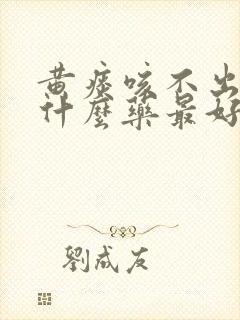 黄痰咳不出
什麼藥最好
劉成友